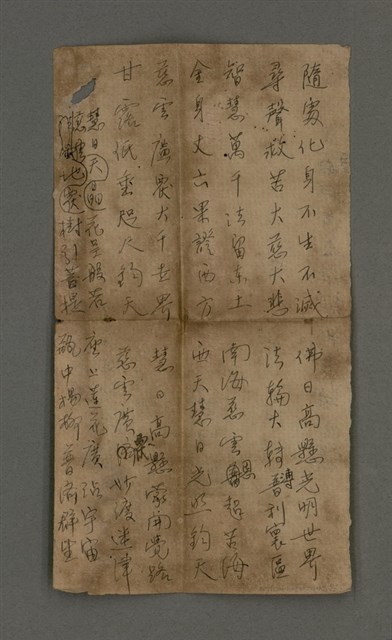 隨處化身不生不滅 佛日高懸光明世界
尋聲救苦大慈大悲 法輪大轉普利寰區
智慧萬千法留東土 南海慈雲超苦海
金身丈六果證西方 西天慧日光照鈞天
慈雲廣震大千世界 慧日高懸蒙開覺路
甘露低垂咫尺鈞天 慈雲廣妙渡迷津
慧日天花呈般若 座上蓮花廣沾宇宙
慈雲地震樹引菩提 瓶中楊柳普濟群生